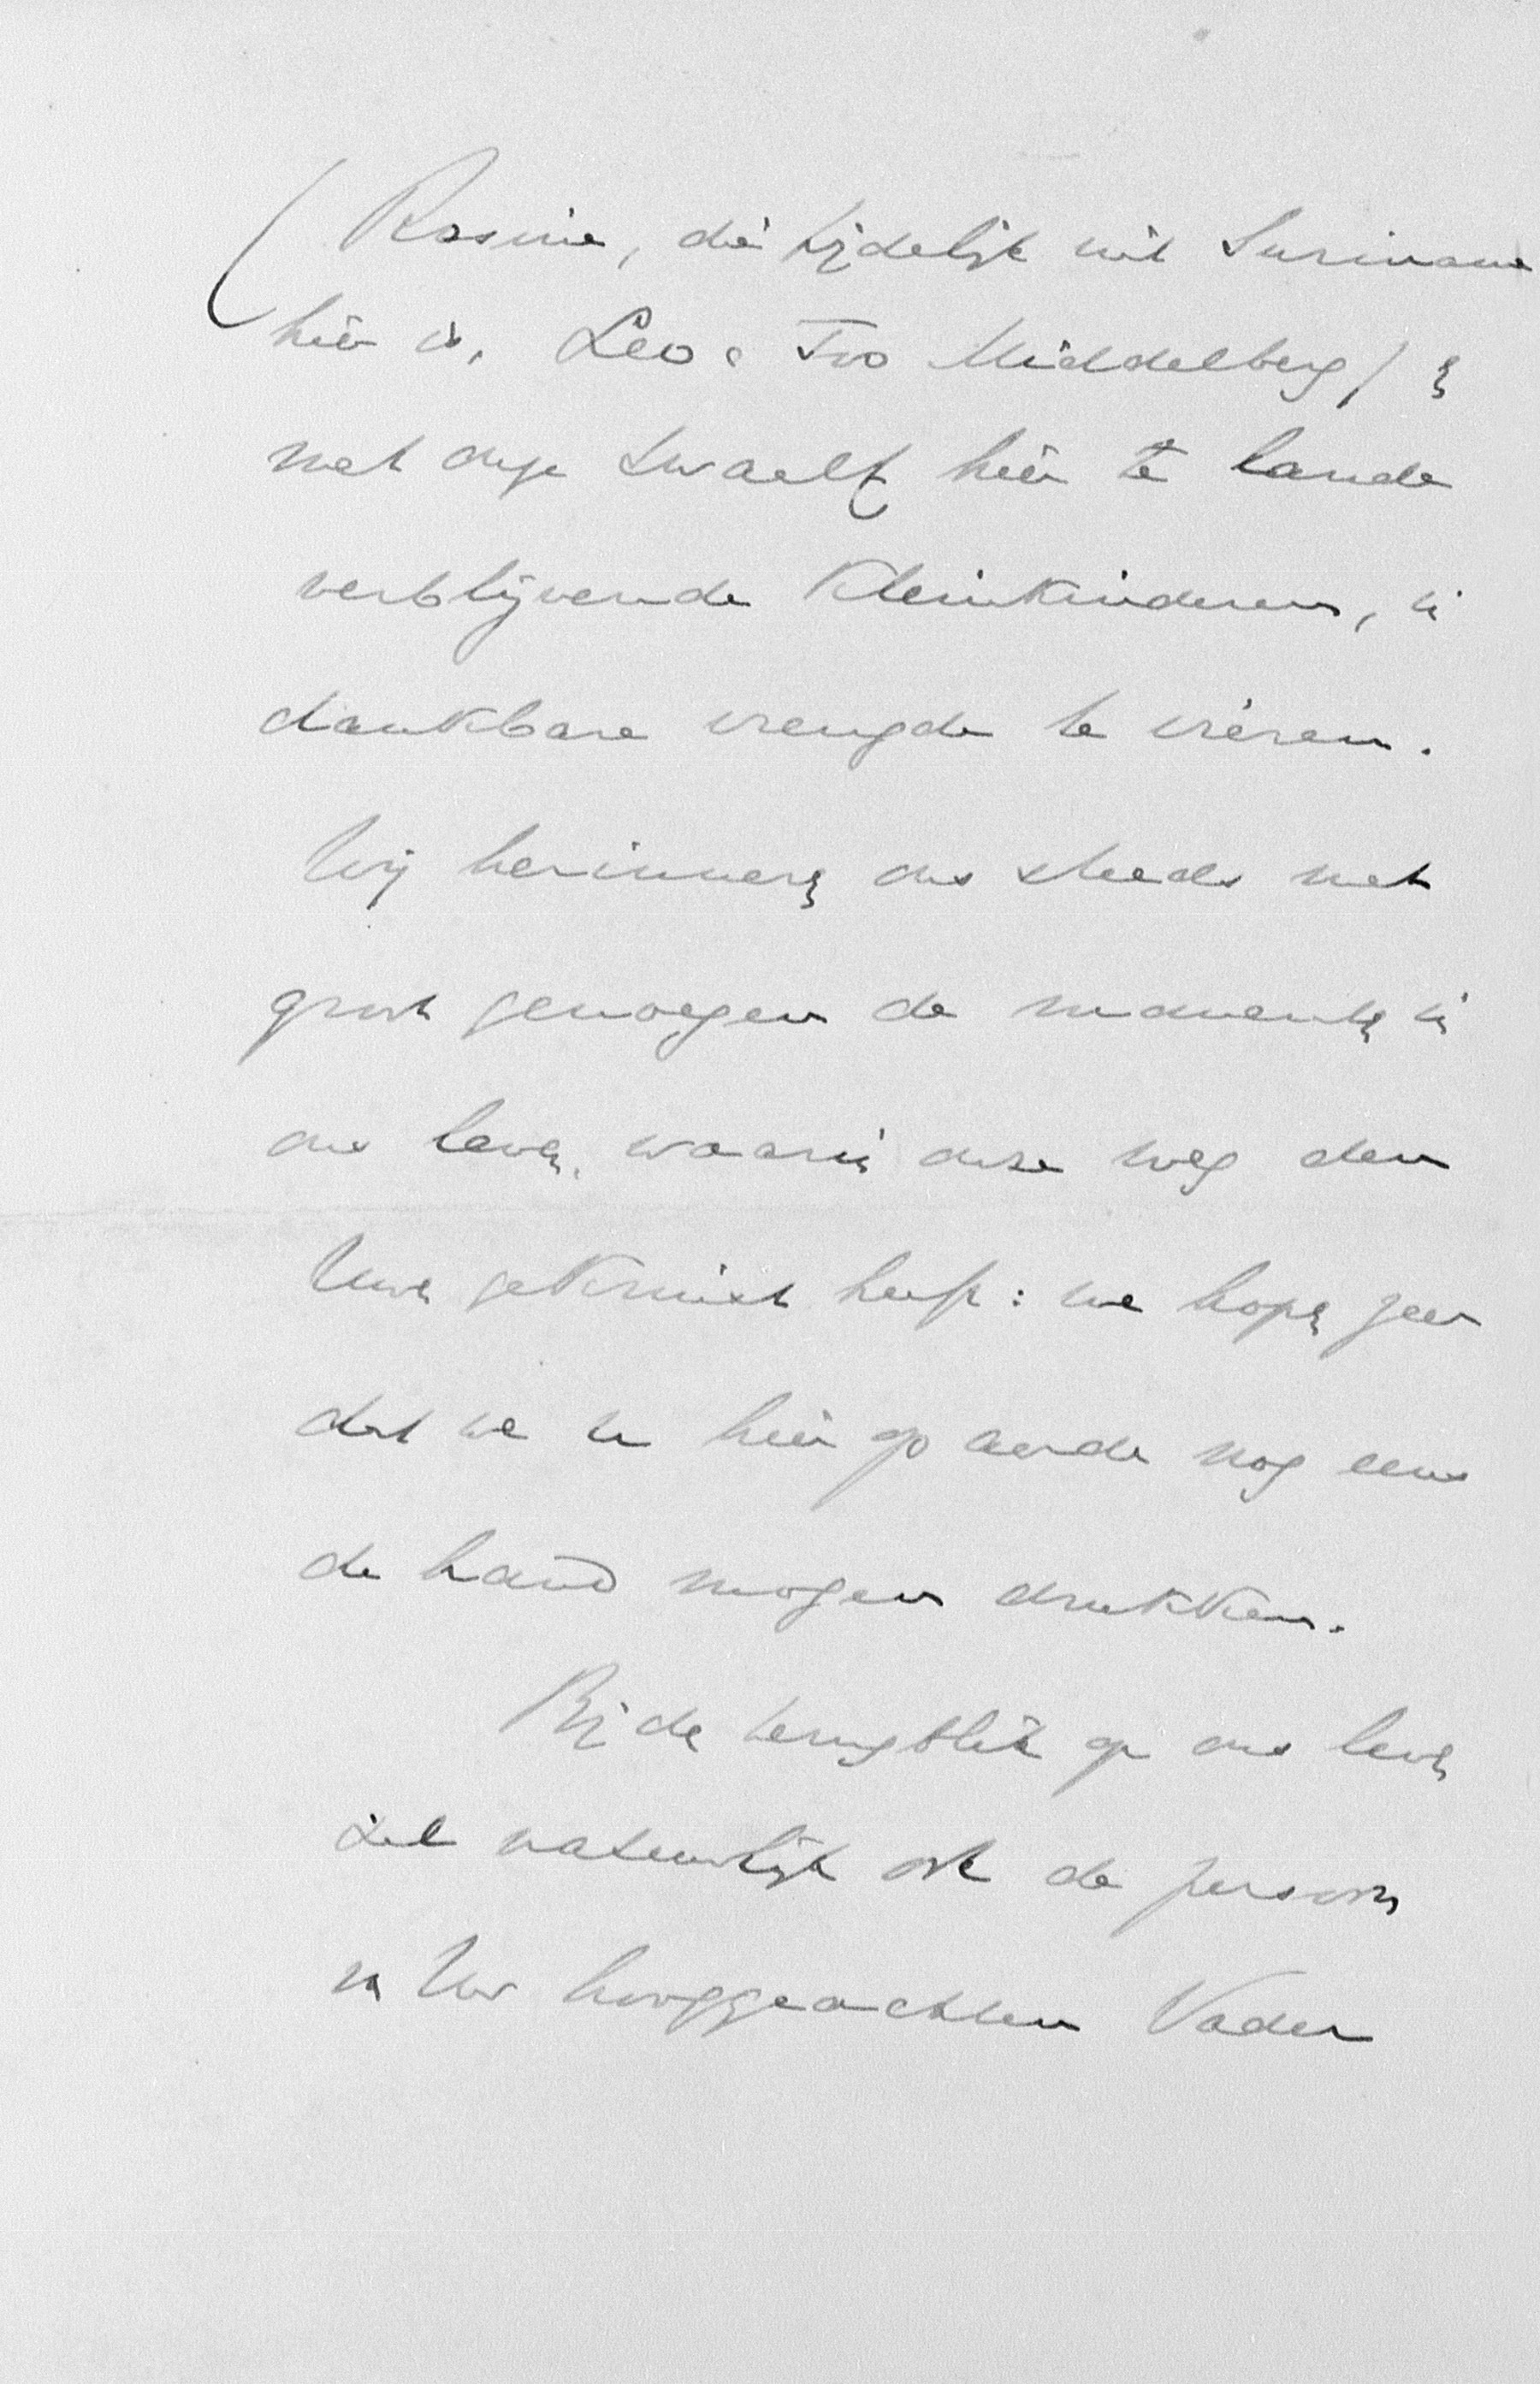 (Rosine, die tijdelijk uit Suriname
hier is, Leo & Ivo Middelberg) en
met onze twaalf hier te lande
verblijvende kleinkinderen, in
dankbare vreugde te vieren.
Wij herinneren ons steeds met
groot genoegen de momenten in
ons leven, waarin onze weg den
Uwen gekruist heeft: we hopen zeer
dat we U hier op aarde nog eens
de hand mogen drukken.
Bij de terugblik op ons leven
zal natuurlijk ook de persoon
v. Uw hooggeachten Vader